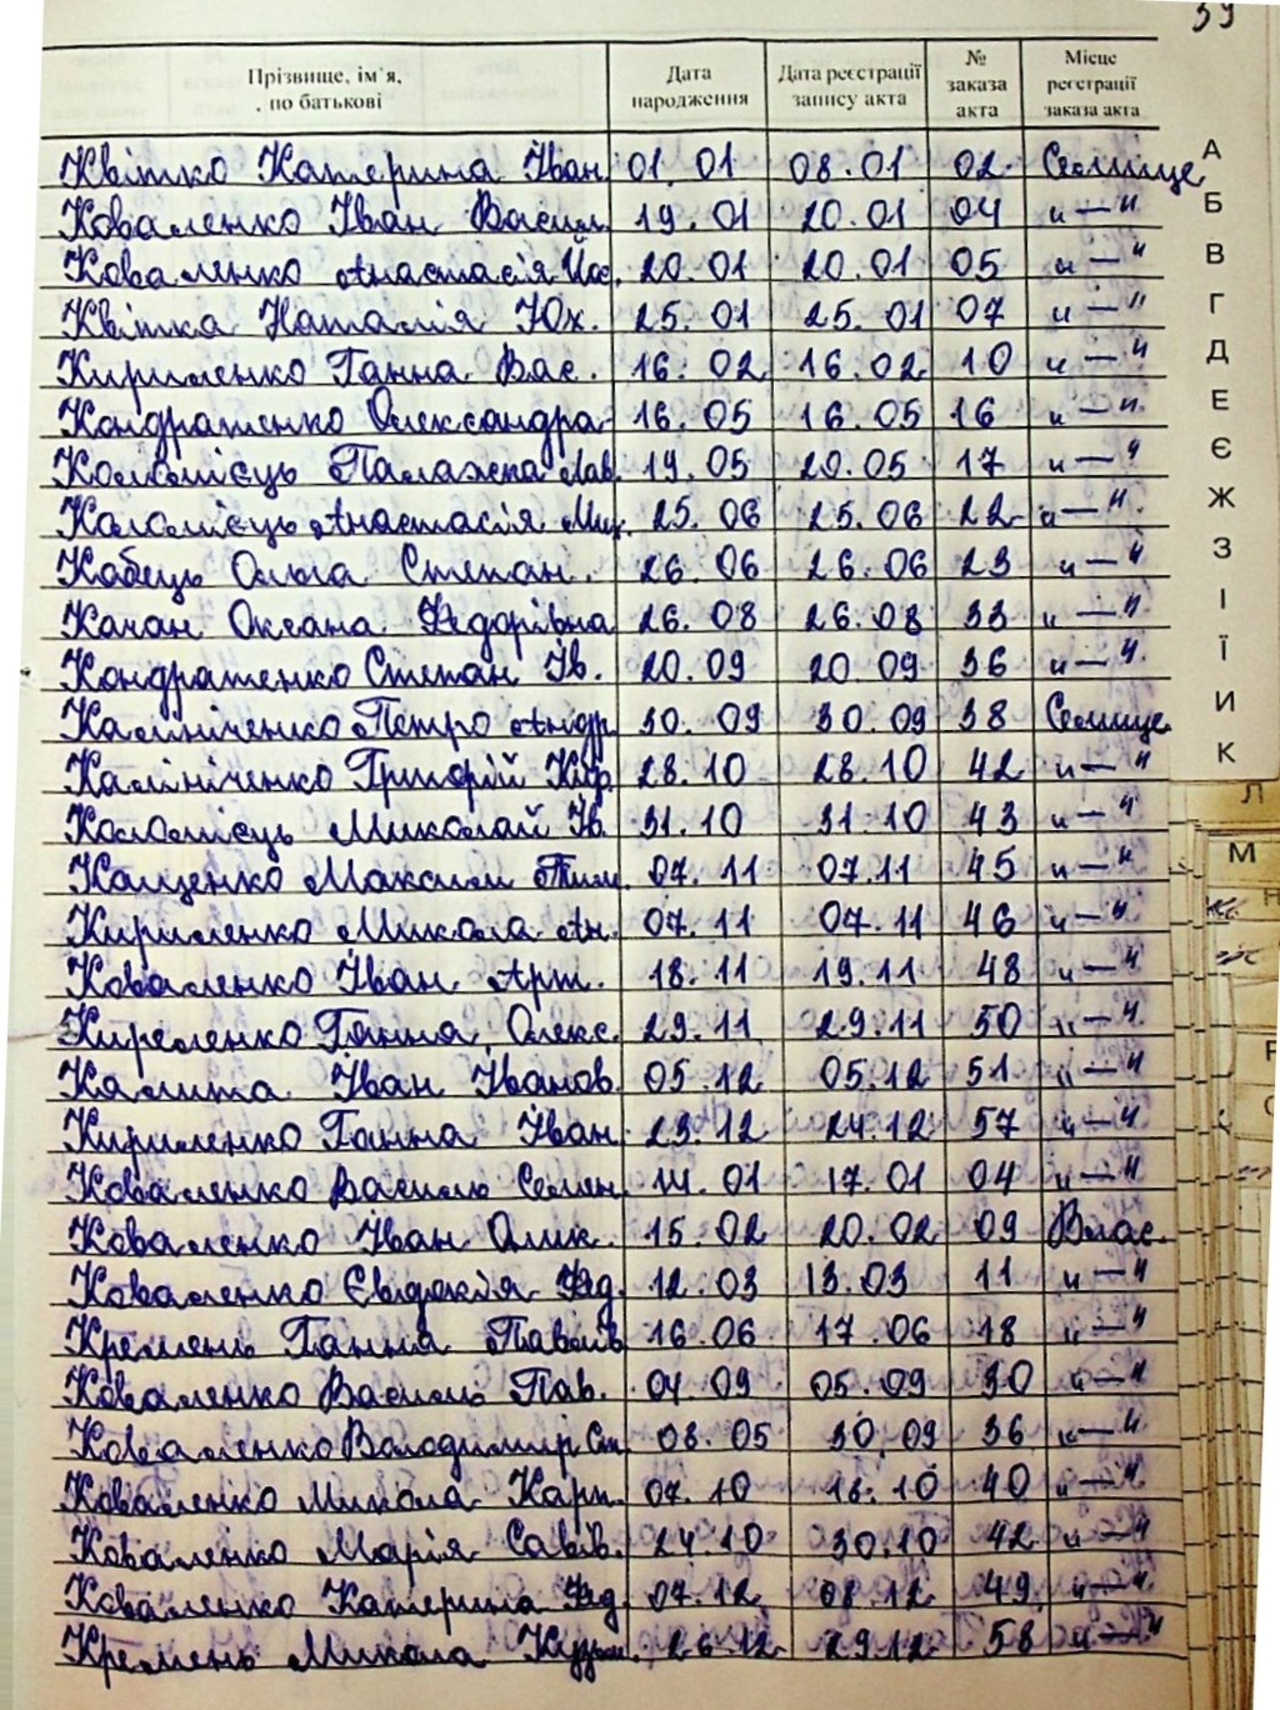 39
Прізвище, ім'я, по батькові | Дата народження | Дата реєстрації запису акта | № заказа акта | Місце реєстрації заказа акта
Квітко Катерина Іван. 01.01 08.01 02 Селище
Коваленко Іван Васил. 19.01 20.01 04 "—"
Коваленко Анастасія Йос. 20.01 20.01 05 "—"
Квітка Наталія Юх. 25.01 25.01 07 "—"
Кириленко Ганна Вас. 16.02 16.02 10 "—"
Кондратенко Олександра 16.05 16.05 16 "—"
Коломієць Палажка Лав. 19.05 20.05 17 "—"
Коломієць Анастасія Мих. 25.06 25.06 22 "—"
Кабець Ольга Степан. 26.06 26.06 23 "—"
Качан Оксана Федорівна 26.08 26.08 33 "—"
Кондратенко Степан Ів. 20.09 20.09 36 "—"
Калініченко Петро Андр. 30.09 30.09 38 Селище
Калініченко Григорій 28.10 28.10 42 "—"
Коломієць Миколай Ів. 31.10 31.10 43 "—"
Кащенко Максим Тим. 07.11 07.11 45 "—"
Кириленко Микола Ан. 07.11 07.11 46 "—"
Коваленко Іван Арт. 18.11 19.11 48 "—"
Киреленко Ганна Олекс. 29.11 29.11 50 "—"
Калита Іван Іванов. 05.12 05.12 51 "—"
Кириленко Ганна Іван. 23.12 24.12 57 "—"
Коваленко Василь Семен. 14.01 17.01 04 "—"
Коваленко Іван Олик. 15.02 20.02 09 Влас.
Коваленко Євдокія Фед. 12.03 13.03 11 "—"
Кремень Ганна Павлів. 16.06 17.06 18 "—"
Коваленко Василь Пав. 04.09 05.09 30 "—"
Коваленко Володимир Ст. 08.05 30.09 36 "—"
Коваленко Микола Карп. 07.10 16.10 40 "—"
Коваленко Марія Савів. 24.10 30.10 42 "—"
Коваленко Катерина Фед. 07.12 08.12 49 "—"
Кремень Микола Кузьм. 26.12 29.12 58 "—"
А
Б
В
Г
Д
Е
Є
Ж
З
І
Ї
И
К
Л
М
Н